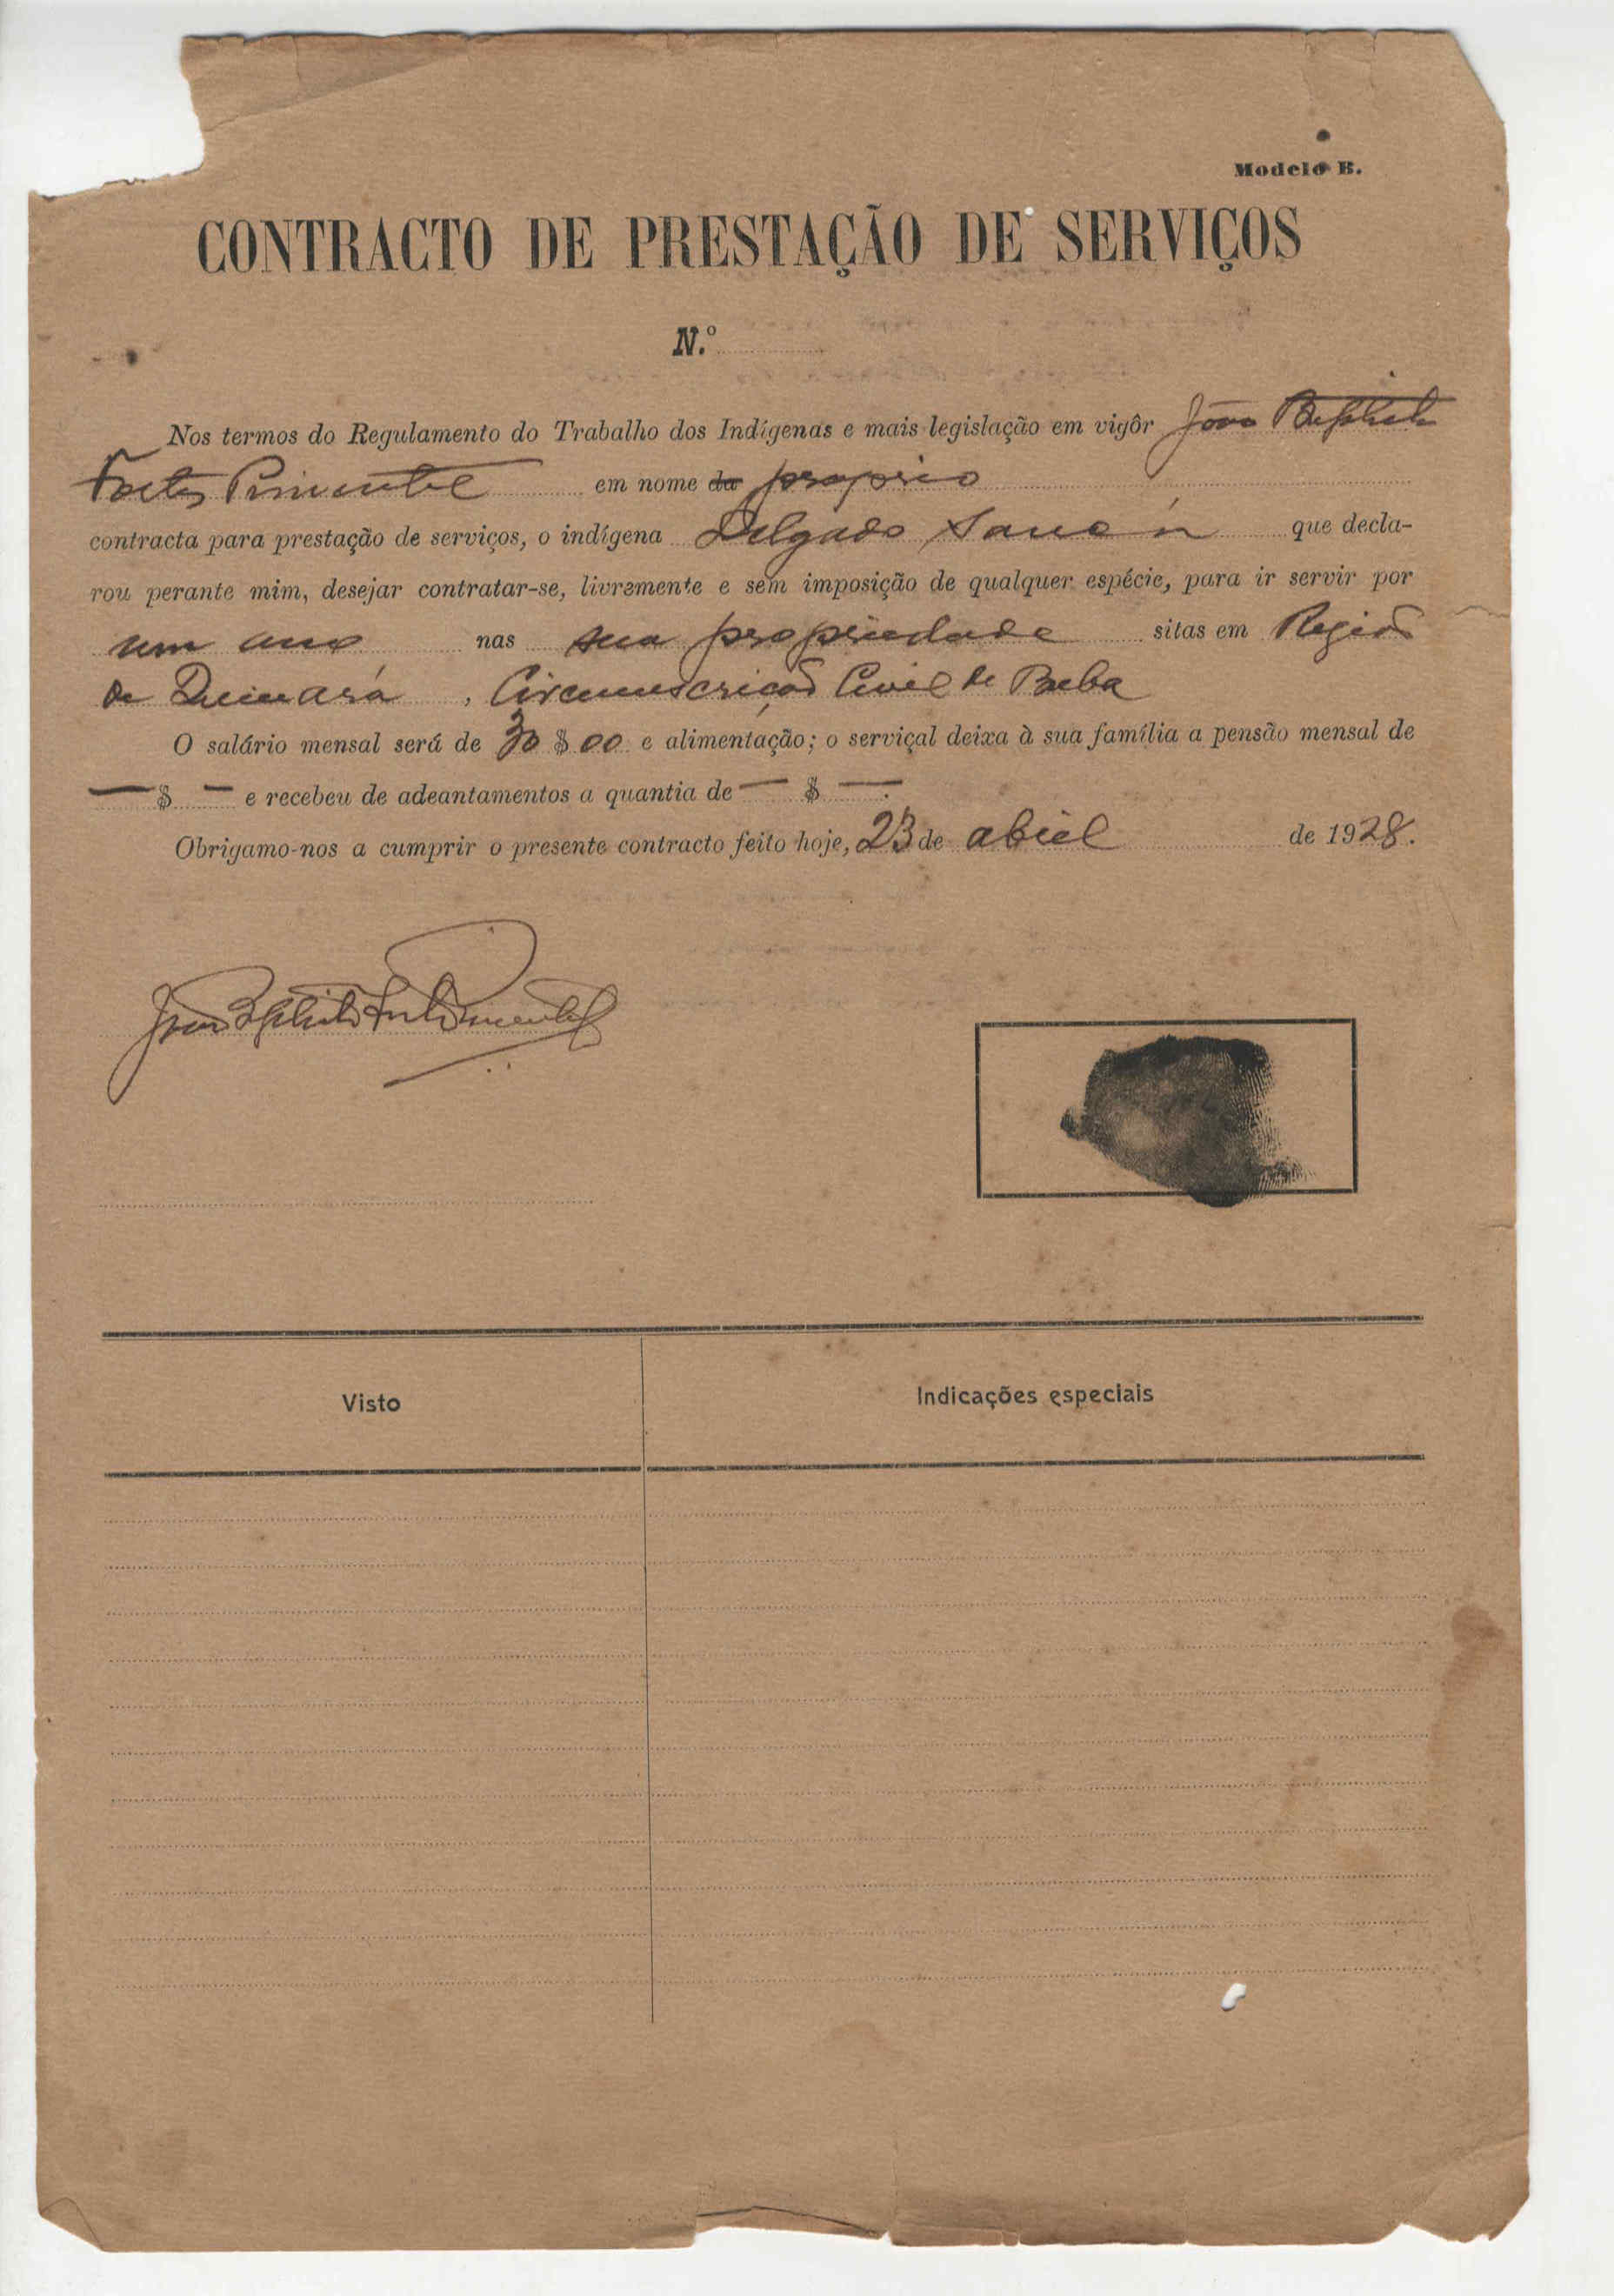 Modelo B.
CONTRACTO DE PRESTAÇÃO DE SERVIÇOS
N.º
Nos termos do Regulamento do Trabalho dos Indígenas e mais legislação em vigôr João Baptista
Fortes Pimentel em nome da proprio
contracta para prestação de serviços, o indígena Delgado que decla-
rou perante mim, desejar contratar-se, livremente e sem imposição de qualquer espécie, para ir servir por
um ano nas sua propriedade sitas em Região
de , Circumscrição Civil de Buba
O salário mensal será de 30 $ 00 e alimentação; o serviçal deixa à sua família a pensão mensal de
— $ — e recebeu de adeantamentos a quantia de — $ —.
Obrigamo-nos a cumprir o presente contracto feito hoje, 23 de abril de 1928.
João Baptista Fortes Pimentel
Visto
Indicações especiais